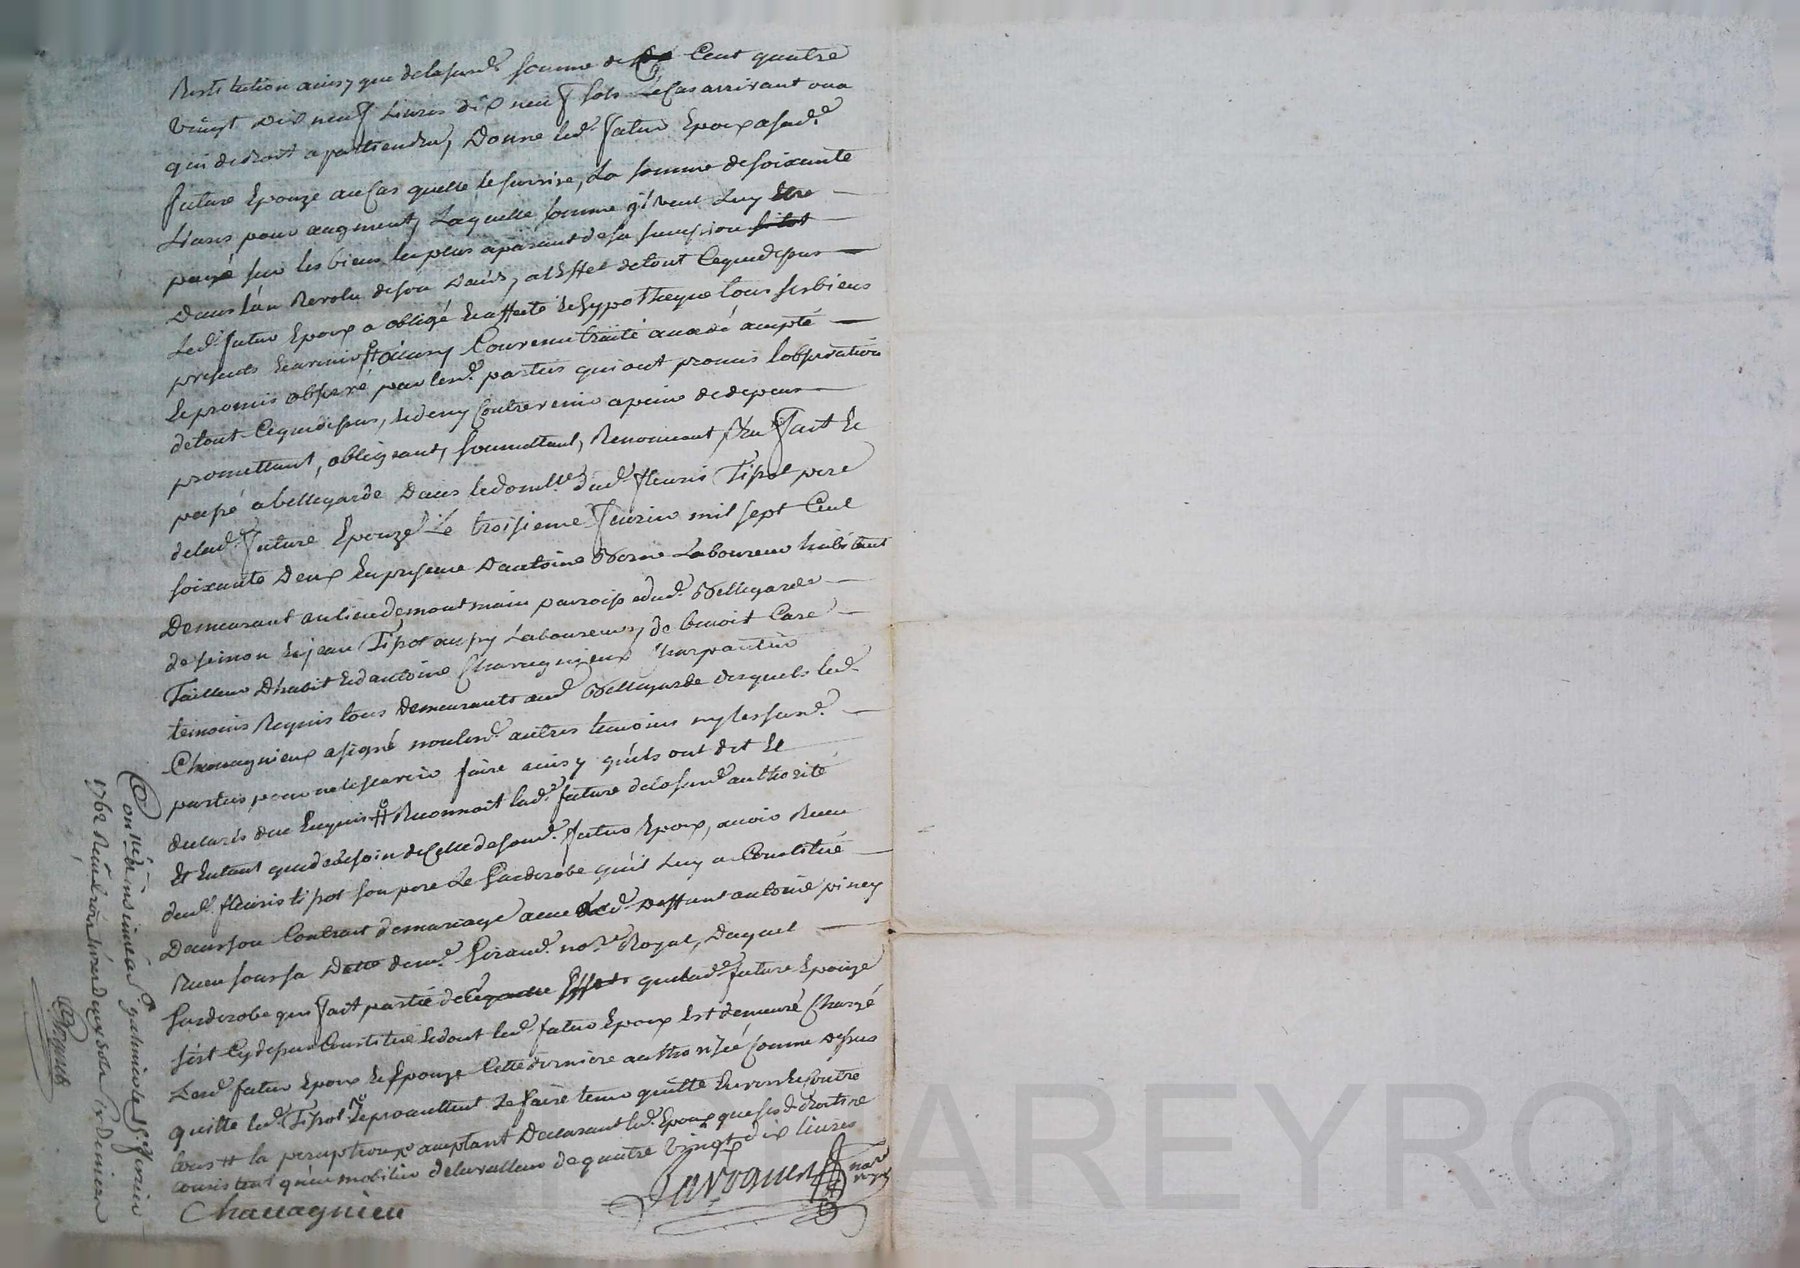 Restitution ainsy que de la susd. somme de Cent quatre
vingt dix neuf Livres dix neuf sols Le Cas arrivant ou a
qui de droit apartiendra, Donne led. futur Epoux a sad.
future Epouze au Cas quelle le survive, La somme de soixante
Livres pour augment, Laquelle somme il veut Luy Etre
payé sur les biens les plus aparant de sa succession
Dans l'an Revolu de son Daicz, a l'Effet de tout Cequedessus
Led. futur Epoux a obligé Et affecté Et hypotheque tous ses biens
presents Et avenir Convenu traité accordé accepté
Et promis observé par lesd. parties qui ont promis l'observation
de tout Cequedessus, Et den y Contrevenir a peine de depens
promettant, obligeant, soumettant, Renoncant fait Et
passé a bellegarde Dans le domille dud. fleuris Tipot pere
delad. future Epouze Le troisieme fevrier mil sept Cent
soixante Deux En presence D'antoine Laboureur habitant
Demeurant au lieu de montmain parroisse dud. Bellegarde
de simon Et jean Tipot aussy Laboureurs, de benoit Care
Tailleur Dhabit Et d'antoine Chavagnieux Charpantier
temoins Requis tous Demeurants aud. Bellegarde desquels led.
Chavagnieux a signé non lesd. autres temoins ny les susd.
parties pour ne le scavoir faire ainsy qu'ils ont dit Et
declaré de ce Enquis Reconnoit lad. future de la susd. authorité
Et Entant que de besoin de Celle de sond. futur Epoux, avoir Receu
dud. fleuris tipot son pere Le Garderobe qu'il Luy a Constitué
Dans son Contrat de mariage avec led. Deffunt antoine piney
Receu sous sa Datte de me. Giraud no.re Royal, Duquel
Garderobe qui fait partie de quelad. future Epouze
s'est Cy dessus Constitué Et dont led. futur Epoux Est demeuré Chargé
Lesd. futur Epoux Et Epouze Cette derniere authorisée Comme dessus
quitte led. Tipot Et promettent Le faire tenir quitte Envers Et Contre
tous la acceptant Declarant led. Epoux que ses droits ne
consistent qu'en mobilier de la valleur de quatre vingt dix livres
Chavagnieu
Conné et insinué a St galmier le 15 fevrier
1762 Receu
PAREYRON